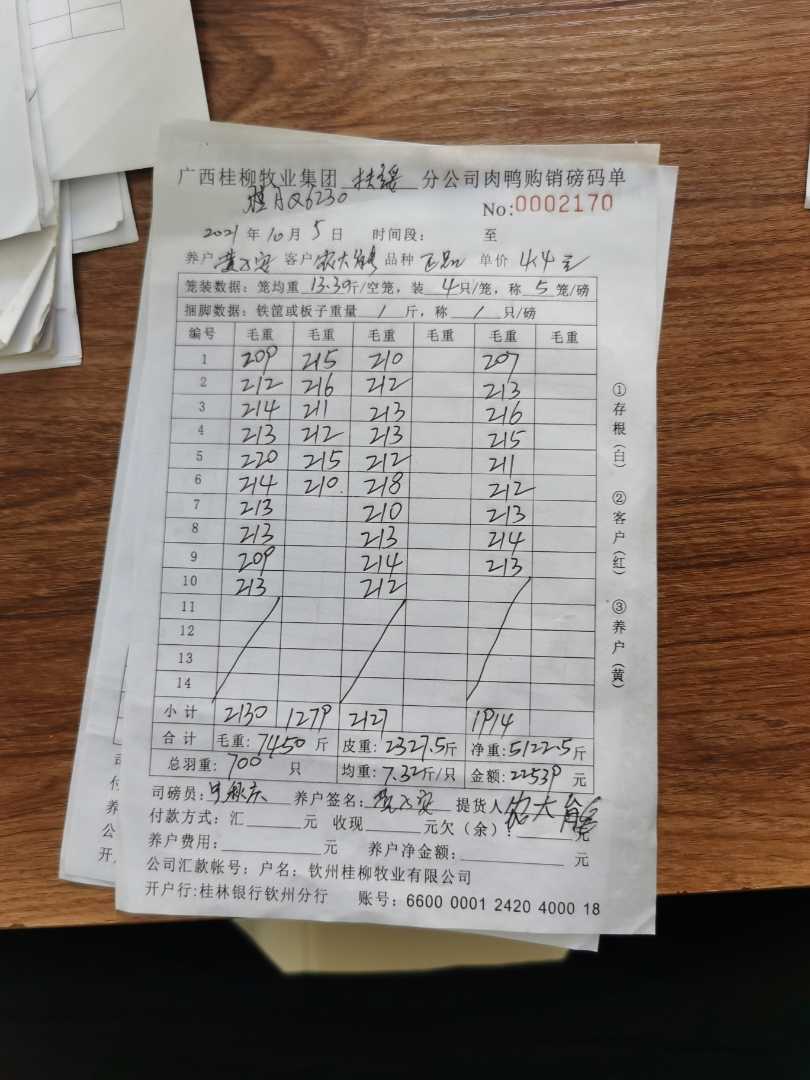 广西桂柳牧业集团 扶绥 分公司肉鸭购销磅码单
桂AQ6230
No:0002170
2021年10月5日 时间段： 至
养户 客户 农大 品种 正品 单价 4.4元
笼装数据：笼均重 13.30斤/空笼，装 4只/笼，称 5笼/磅
捆脚数据：铁筐或板子重量 / 斤，称 / 只/磅
编号 毛重 毛重 毛重 毛重 毛重 毛重
1 209 215 210 207
2 212 216 212 213
3 214 211 213 216
4 213 212 213 215
5 220 215 212 211
6 214 210. 218 212
7 213 210 213
8 213 213 214
9 209 214 213
10 213 212
11
12
13
14
小计 2130 1279 2127 1914
合计 毛重：7450斤 皮重：2327.5斤 净重：5122.5斤
总羽重：700只 均重：7.32斤/只 金额：22539元
司磅员： 养户签名： 提货人 农大
付款方式：汇 元 收现 元欠（余）： 元
养户费用： 元 养户净金额： 元
公司汇款帐号：户名：钦州桂柳牧业有限公司
开户行：桂林银行钦州分行 账号：6600 0001 2420 4000 18
①存根（白） ②客户（红） ③养户（黄）